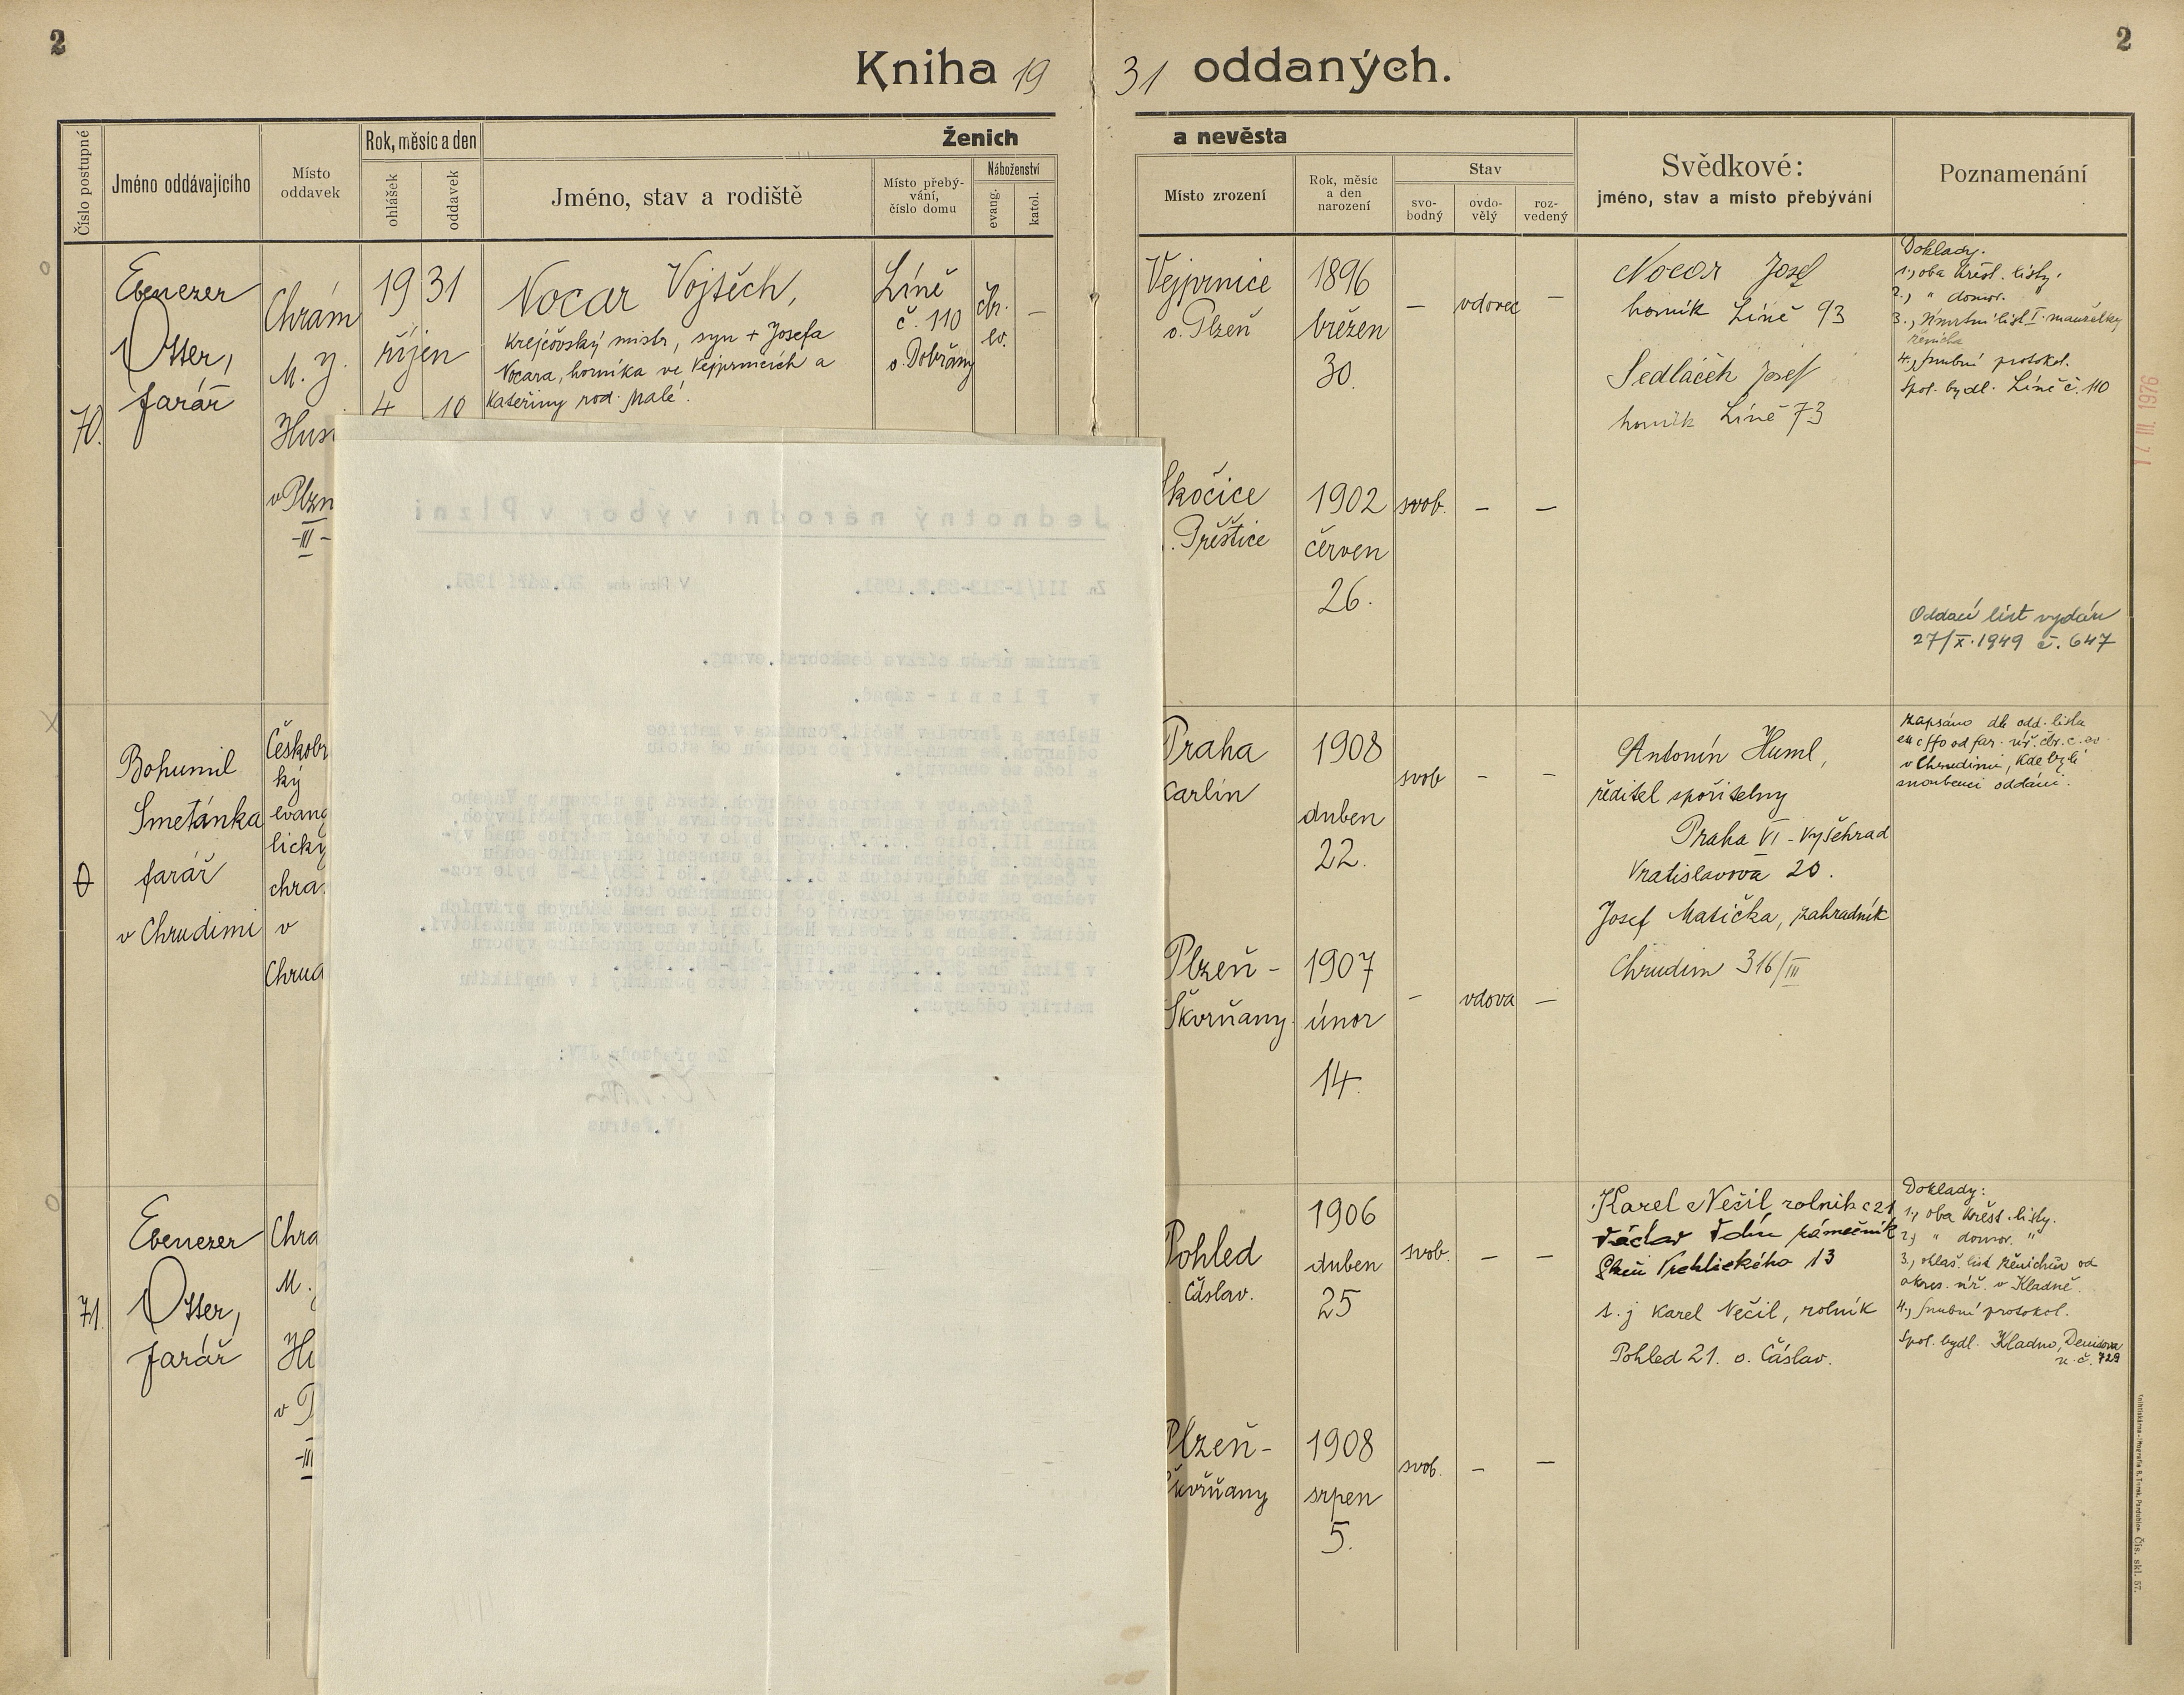 2
2
Kniha 19 31 oddaných.
Číslo postupné
Jméno oddávajícího
Místo
oddavek
Rok, měsíc a den
ohlášek
oddavek
Ženich
Jméno, stav a rodiště
Místo přebý-
vání,
číslo domu
Náboženství
evang.
katol.
a nevěsta
Místo zrození
Rok, měsíc
a den
narození
Stav
svo-
bodný
ovdo-
vělý
roz-
vedený
Svědkové:
jméno, stav a místo přebývání
Poznamenání
70.
Ebenezer
Otter,
farář
Chrám
M. J.
Hus
v Plzn
-III-
19 31
říjen
4 10
Nocar Vojtěch,
krejčovský mistr, syn + Josefa
Nocara, horníka ve Vejprnicích a
Kateřiny rod. Malé.
Líně
č. 110
o. Dobřany
čbr.
ev.
–
Vejprnice
o. Plzeň
1896
březen
30.
–
vdovec
–
Nocar Josef
horník Líně 93
Sedláček Josef
horník Líně 73
Doklady:
1., oba křest. listy.
2., " domov. "
3., Úmrtní list I. manželky
ženicha
4., snubní protokol.
Spol. bydl. Líně č. 110
17. III. 1976
Skočice
Přeštice
1902
červen
26.
svob.
–
–
Oddací list vydán
27/X.1949 č. 647
0
Bohumil
Smetánka
farář
v Chrudimi
Českobr
ký
evang
lický
chrá
v
Chrud
Praha
Karlín
1908
duben
22.
svob
–
–
Antonín Huml,
ředitel spořitelny
Praha VI - Vyšehrad
Vratislavova 20.
Josef Matička, zahradník
Chrudim 316/III
zapsáno dle odd. listu
ex offo od far. úř. čbr. c. ev.
v Chrudimi, kde byli
snoubenci oddáni.
Plzeň -
Škvrňany.
1907
únor
14.
–
vdova
–
71.
Ebenezer
Otter,
farář
Chrá
M.
Hu
v P
-III
Pohled
Čáslav.
1906
duben
25
svob.
–
–
Karel Nečil rolník č 21
Václav zámečník
Vrchlického 13
t. j Karel Nečil, rolník
Pohled 21. o. Čáslav.
Doklady:
1., oba křest. listy.
2., " domov. "
3., ohláš. list ženichův od
okres. úř. v Kladně.
4., snubní protokol.
Spol. bydl. Kladno, Denisova
u. č. 729
Plzeň-
Škvrňany
1908
srpen
5.
svob.
–
–
Jednotný národní výbor v Plzni
Zn III/1-213-28.8.1951.
V Plzni dne 20.září 1951.
Farnímu úřadu církve českobrat.evang.
v Plzni - západ.
Helena a Jaroslav Nečil.Poznámka v matrice
oddaných,že manželství po rozvodu od stolu
a lože se obnovuje.
v Českých Budějovicích
matriky oddaných.
Za předsedu JNV:
Čís. skl. 57.